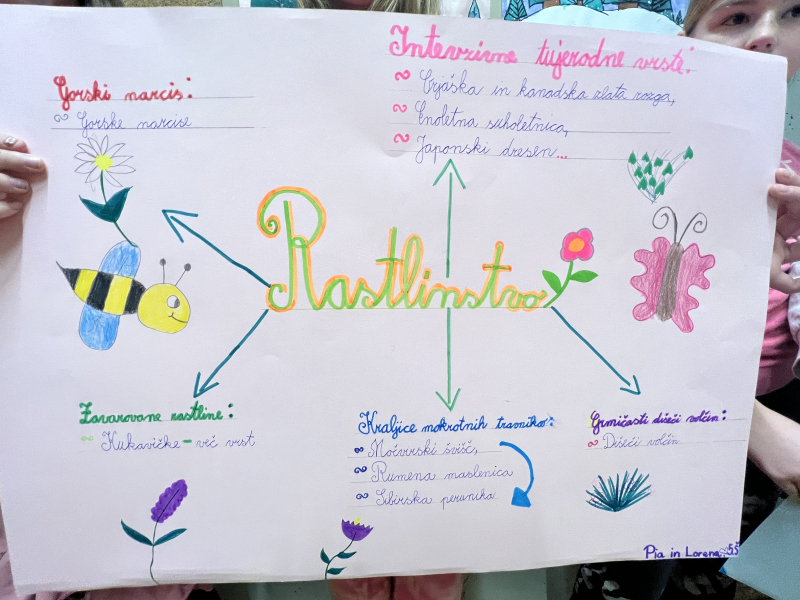 Intevzivne tujerodne vrste:
Orjaška in kanadska zlata rozga,
Enoletna suholetnica,
Japonski dresen...
Gorski narcis:
Gorske narcise
Rastlinstvo
Zavarovane rastline:
Kukavičke - več vrst
Kraljice mokrotnih travnikov:
Močvirski svišč,
Rumena maslenica
Sibirska perunika
Grmičasti dišeči volčin:
Dišeči volčin
Pia in Lorena